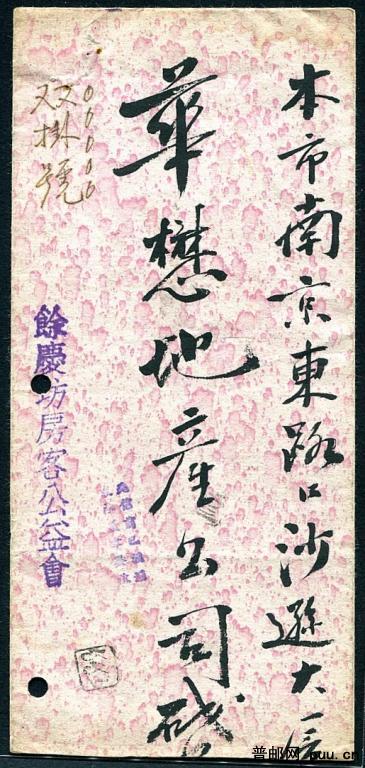 本市南京東路口沙遜大厦
華懋地產公司
双掛號
餘慶坊房客公益會
普邮网 puu.cn